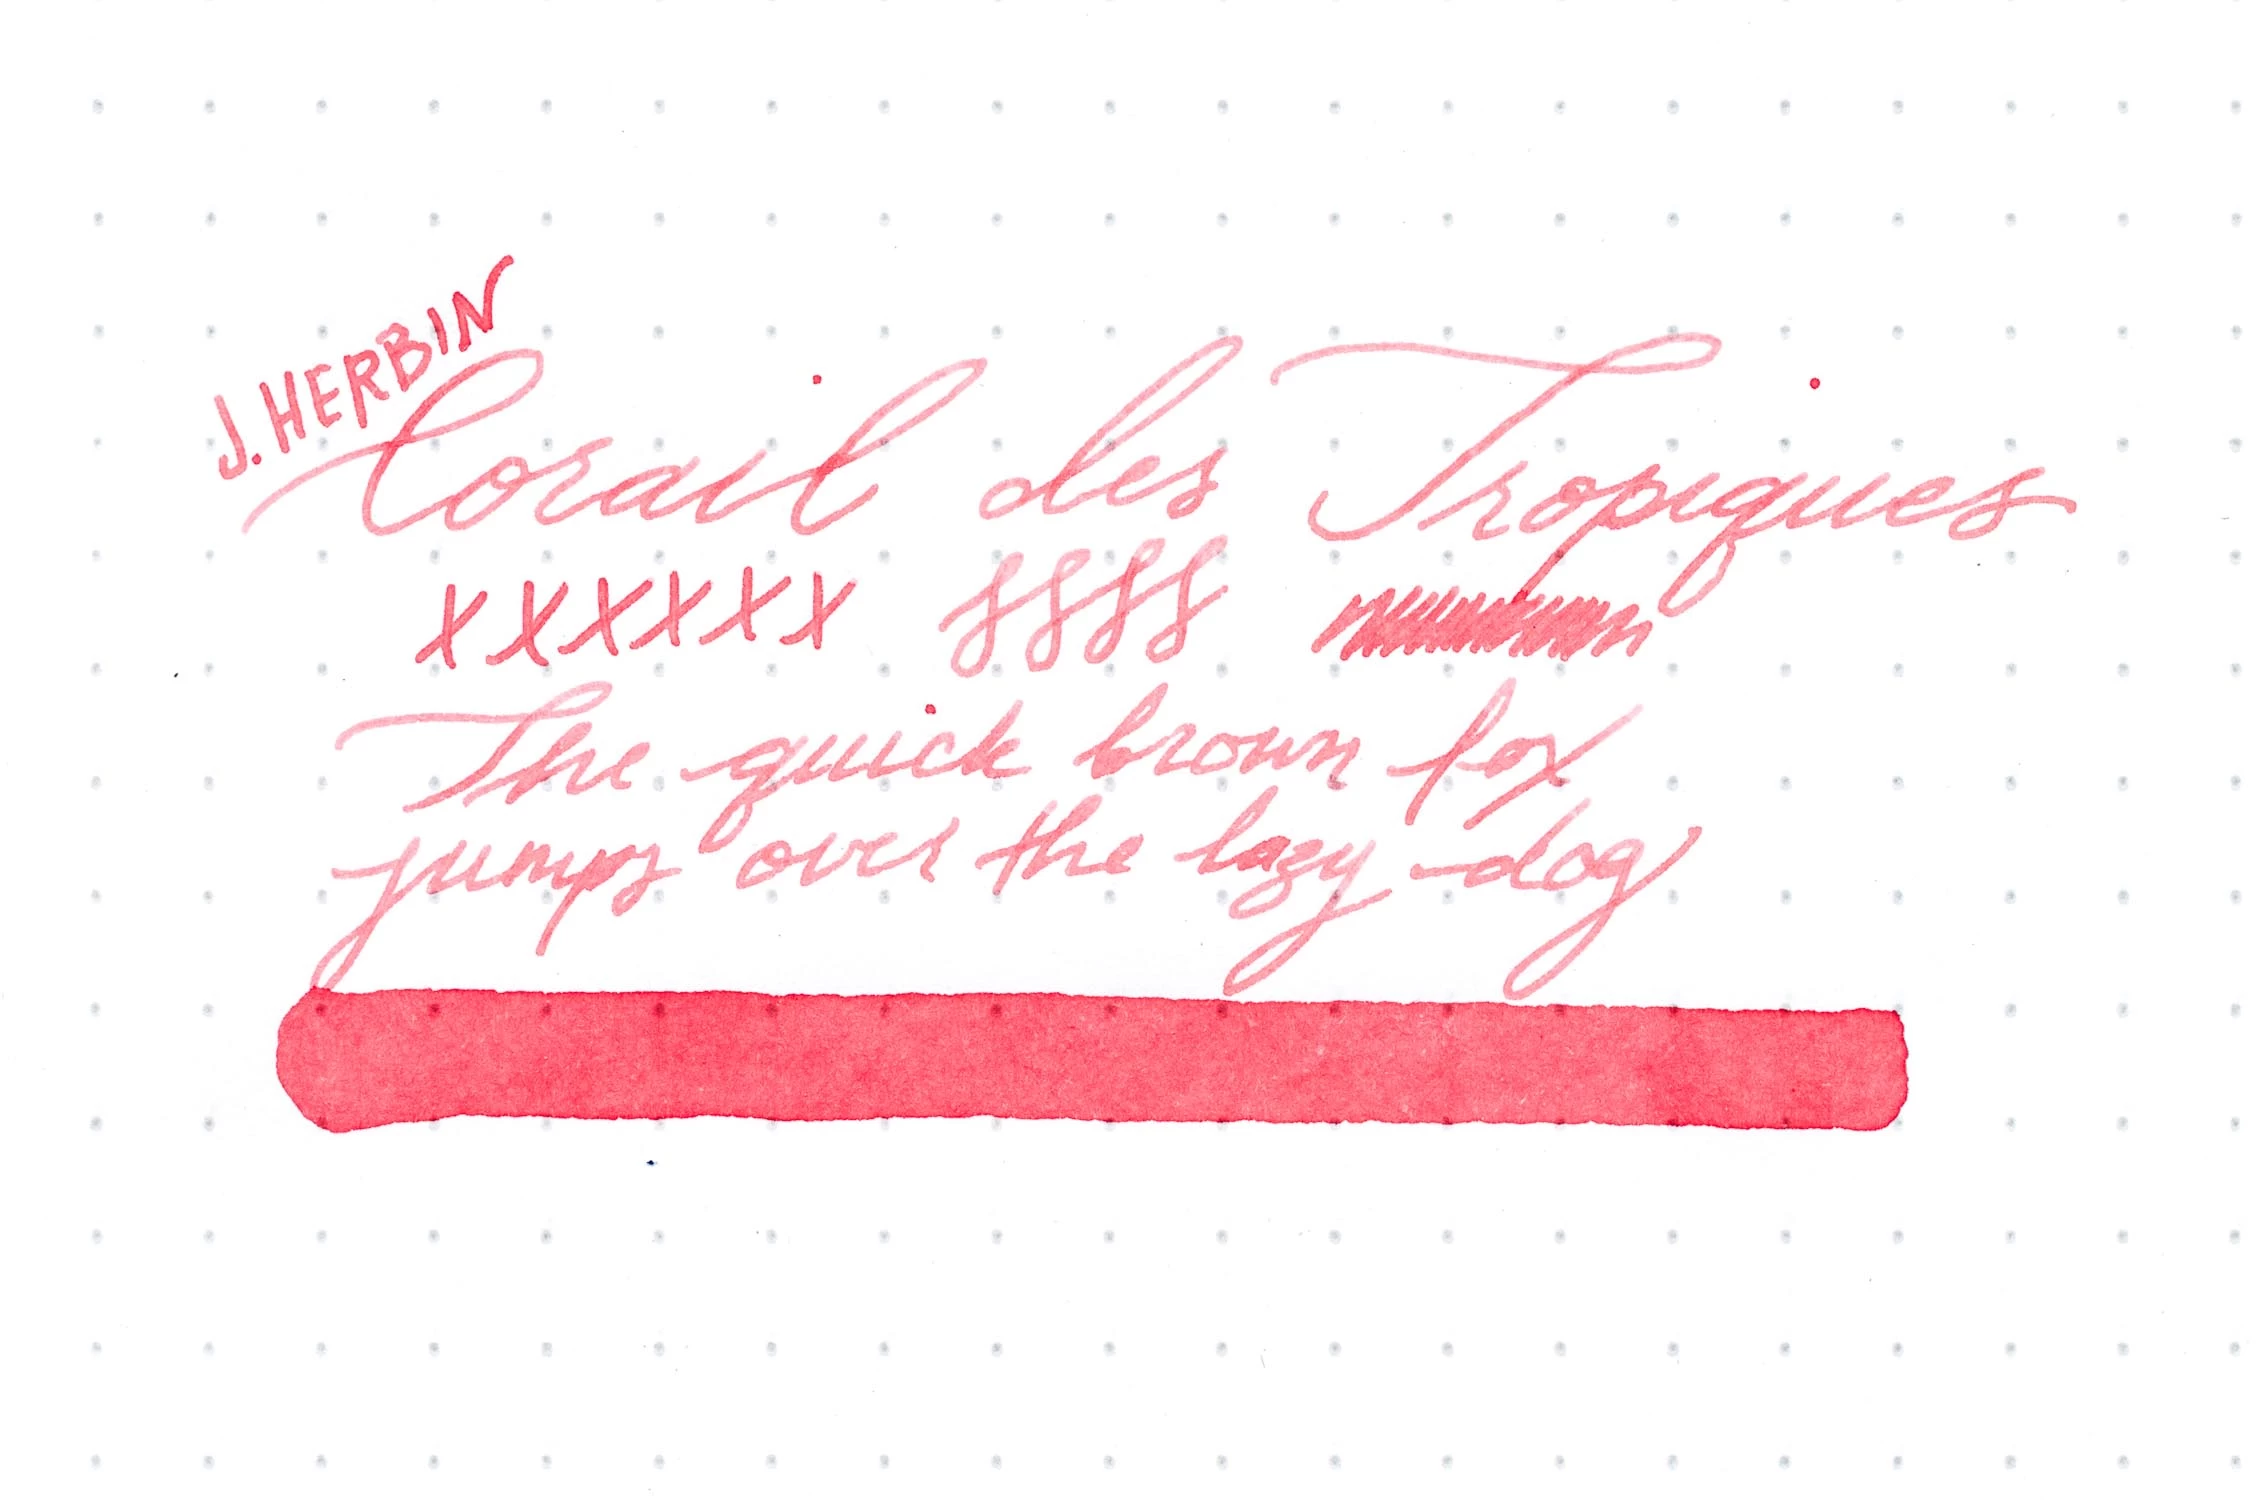 J. HERBIN
Corail des Tropiques
xxxxxx ssss
The quick brown fox
jumps over the lazy dog